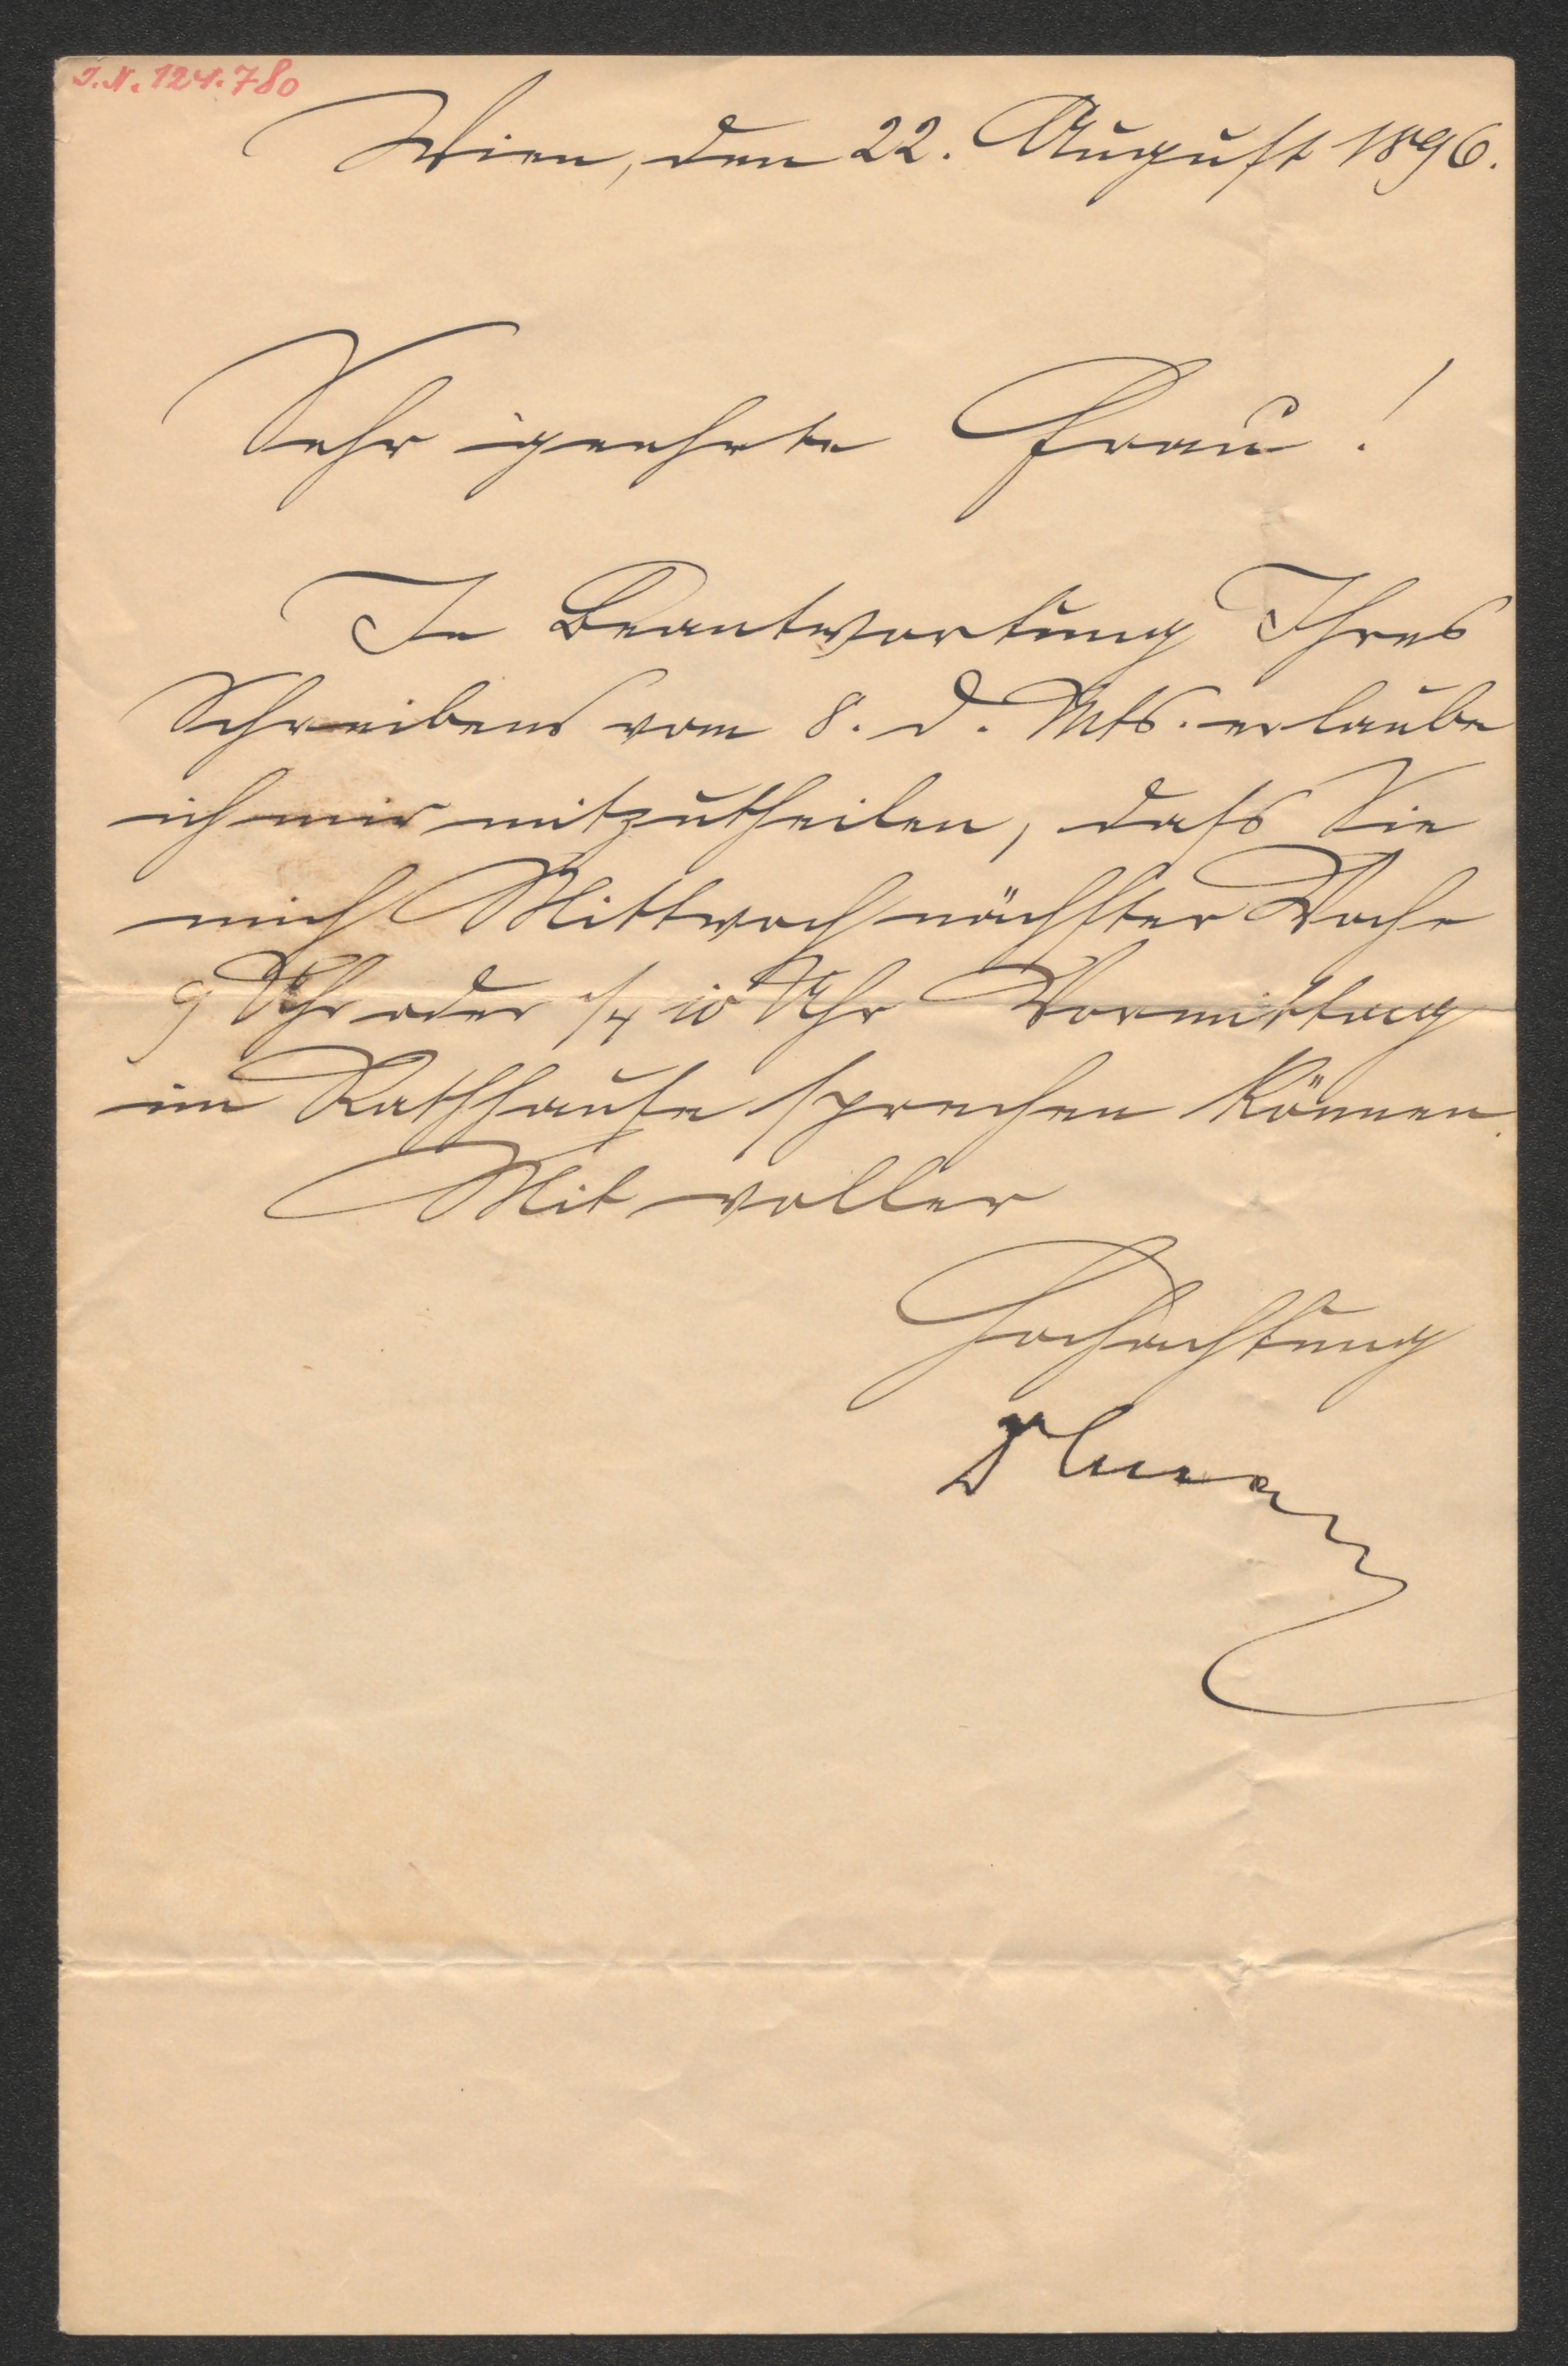 J.N. 124.780
Wien, den 22. August 1896.
Sehr geehrte Frau!
In Beantwortung Ihres
Schreibens vom 8. d. Mts. erlaube
ich mir mitzutheilen, dass Sie
mich Mittwoch nächster Woche
9 Uhr oder 1/4 10 Uhr Vormittag
im Rathhause sprechen können.
Mit voller
Hochachtung
Dr Lueger